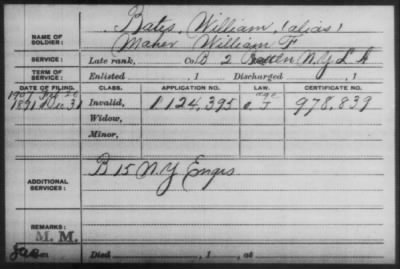 NAME OF SOLDIER: Bates, William, (alias)
Maher William F
SERVICE: Late rank, Co. B 2 N.Y. L A
TERM OF SERVICE: Enlisted , 1 Discharged , 1
DATE OF FILING. CLASS. APPLICATION NO. LAW. CERTIFICATE NO.
1907
1891 Dec 31 Invalid, 1124,395 978,839
Widow,
Minor,
ADDITIONAL SERVICES: B 15 N.Y. Engrs
REMARKS:
M. M.
Died , 1 , at